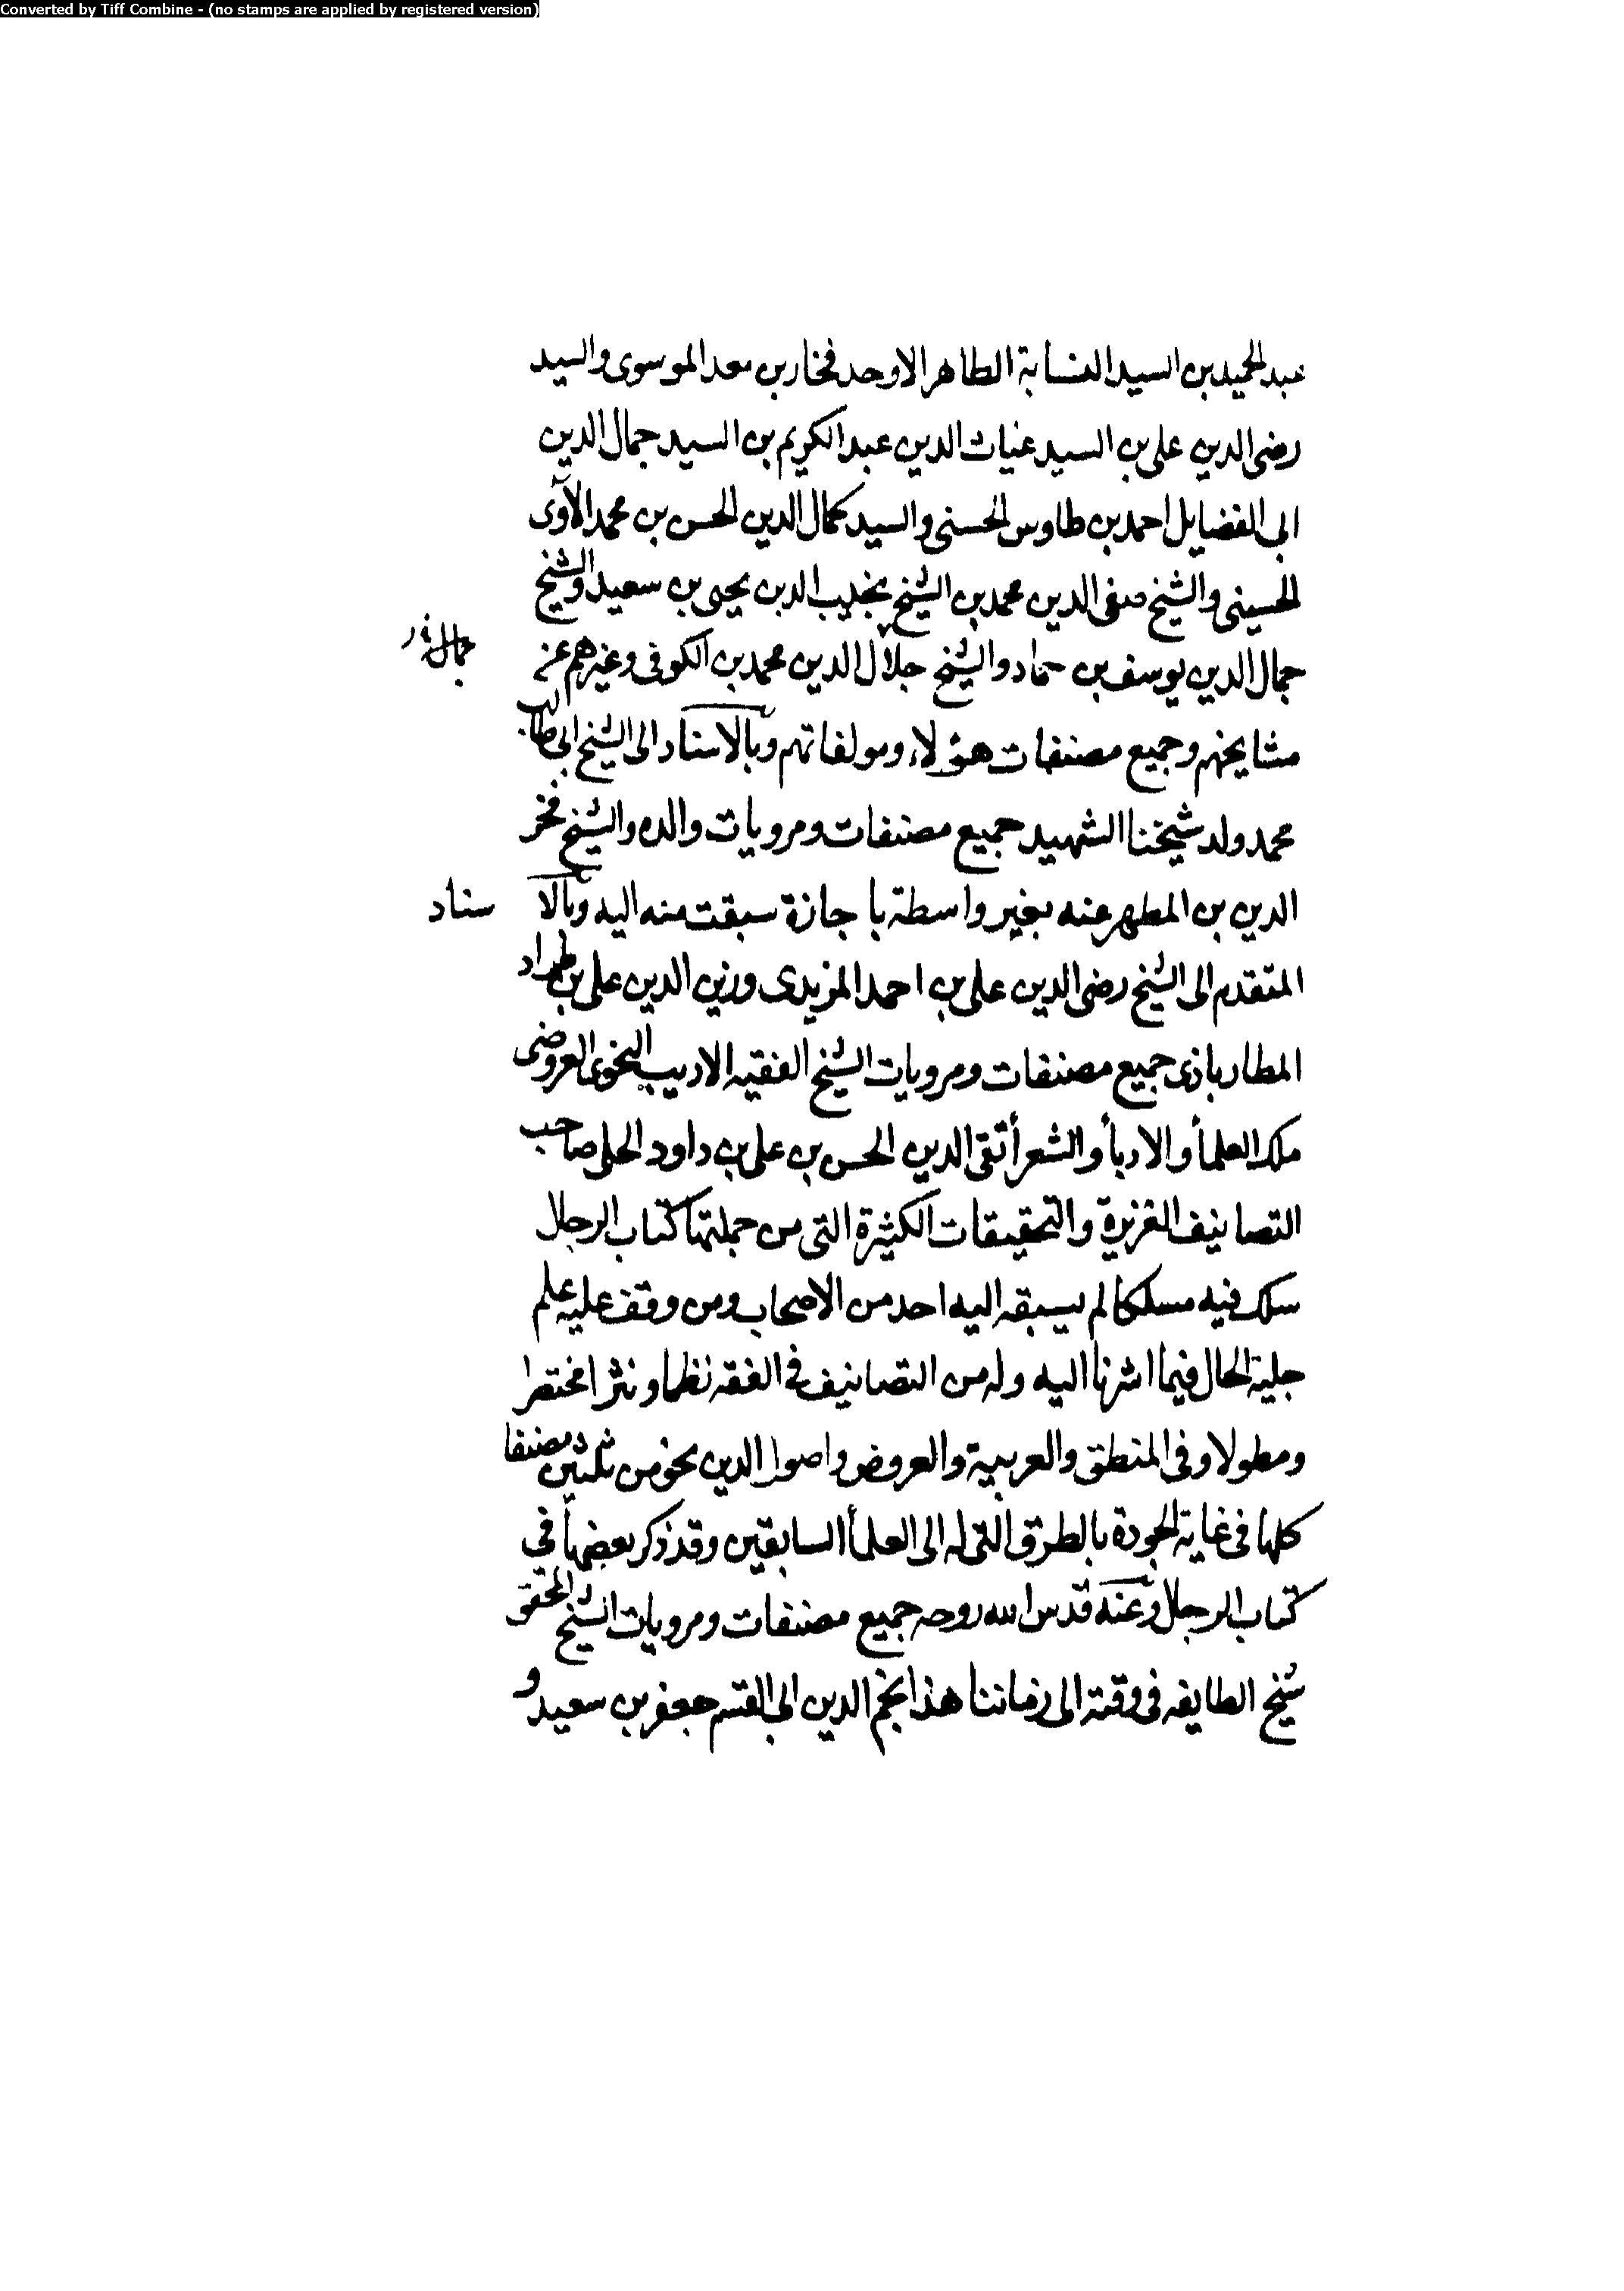 Converted by Tiff Combine - (no stamps are applied by registered version)
عبد الحميد بن السيد النسابة الطاهر الاوحد فخار بن معد الموسوى والسيد
رضى الدين على بن السيد غياث الدين عبد الكريم بن السيد جمال الدين
ابى الفضايل احمد بن طاوس الحسنى والسيد كمال الدين الحسن بن محمد الآوى
الحسينى والشيخ صفى الدين محمد بن الشيخ نجيب الدين يحيى بن سعيد والشيخ
جمال الدين يوسف بن حماد والشيخ جلال الدين محمد بن الكوفى وغيرهم عن
مشايخهم وجميع مصنفات هؤلاء ومولفاتهم وبالاسناد الى الشيخ ابى طالب
محمد ولد شيخنا الشهيد جميع مصنفات ومرويات والده والشيخ فخر
الدين بن المطهر عنه بغير واسطة باجازة سبقت منه اليه وبالا سناد
المتقدم الى الشيخ رضى الدين على بن احمد المزيدى وزين الدين على بن طراد
المطارباذى جميع مصنفات ومرويات الشيخ الفقيه الاديب النحوى العروضى
ملك العلمأ والادبأ والشعرأ تقى الدين الحسن بن على بن داود الحلى صاحب
التصانيف الغزيرة والتحقيقات الكثيرة التى من جملتها كتاب الرجال
سلك فيه مسلكا لم يسبقه اليه احد من الاصحاب ومن وقف عليه علم
جلية الحال فيما اشرنا اليه وله من التصانيف فى الفقه نظما ونثرا مختصرا
ومطولا وفى المنطق والعربية والعروض واصول الدين نحو من ثلثين مصنفا
كلها فى غاية الجودة بالطرق التى له الى العلمأ السابقين وقد ذكر بعضها فى
كتاب الرجال وعنه قدس الله روحه جميع مصنفات ومرويات الشيخ المحقق
شيخ الطايفه فى وقته الى زماننا هذا نجم الدين ابى القسم جعفر بن سعيد و